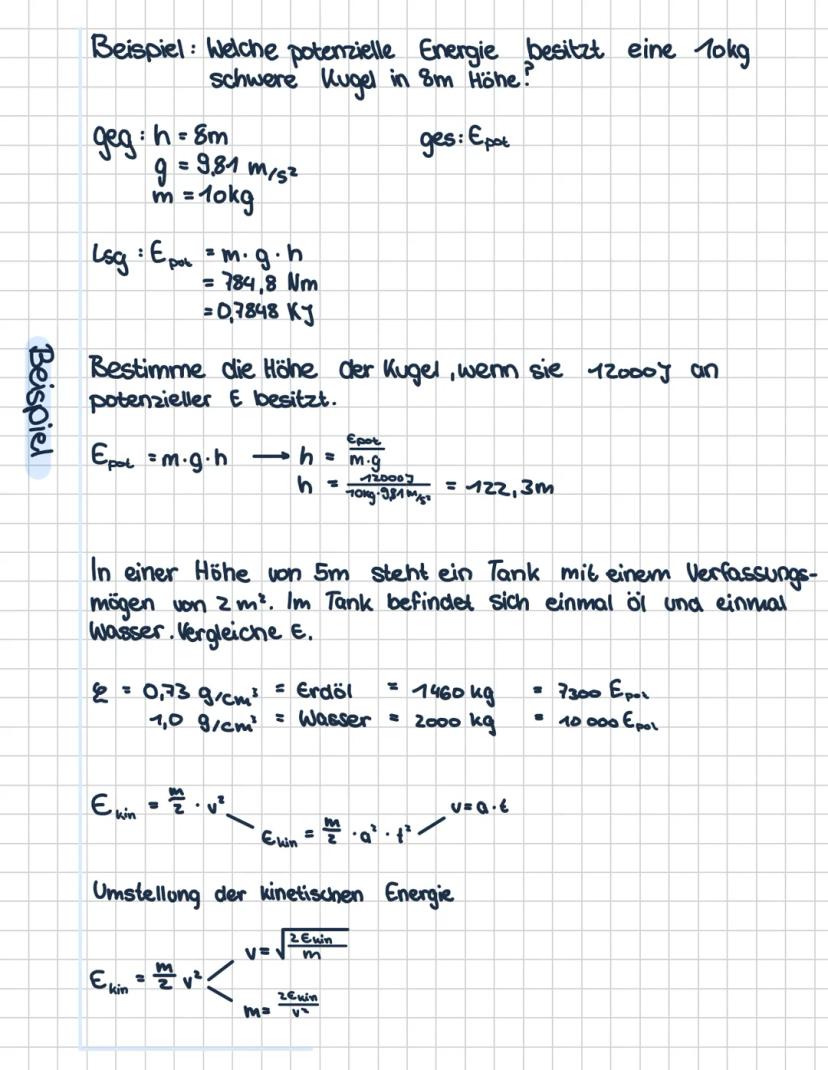 Beispiel: Welche potenzielle Energie besitzt eine 10kg
schwere Kugel in 8m Höhe?
geg: h = 8m ges: Epot
g = 9,81 m/s²
m = 10kg
Lsg: Epot = m · g · h
= 784,8 Nm
= 0,7848 KJ
Beispiel
Bestimme die Höhe der Kugel, wenn sie 12000J an
potenzieller E besitzt.
Epot = m·g·h → h = Epot / m·g
h = 12000J / 10kg·9,81m/s² = 122,3m
In einer Höhe von 5m steht ein Tank mit einem Verfassungs-
mögen von 2m². Im Tank befindet sich einmal öl und einmal
Wasser. Vergleiche E.
ϱ = 0,73 g/cm³ = Erdöl = 1460 kg = 7300 Epot
1,0 g/cm³ = Wasser = 2000 kg = 10 000 Epot
Ekin = m/2 · v² v = a·t
Ekin = m/2 · a² · t²
Umstellung der kinetischen Energie
v = √(2Ekin / m)
Ekin = m/2 v²
m = 2Ekin / v²